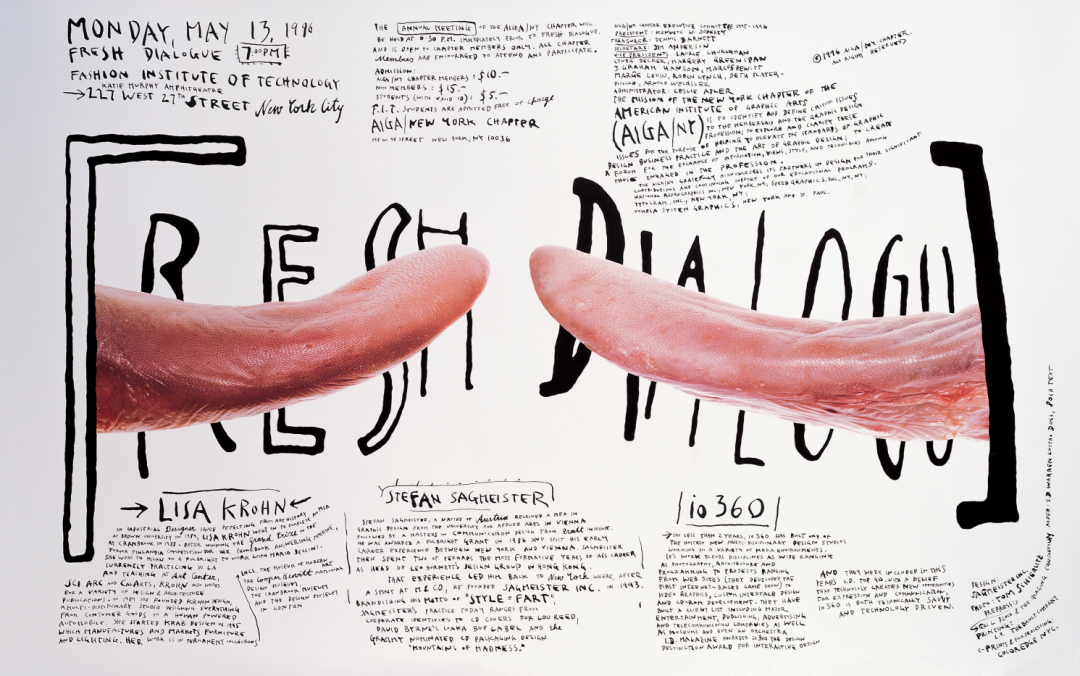 MONDAY, MAY 13, 1996
FRESH DIALOGUE 7:00PM
FASHION INSTITUTE OF TECHNOLOGY
KATIE MURPHY AMPHITHEATRE
→227 WEST 27TH STREET New York City
THE ANNUAL MEETING OF THE AIGA/NY CHAPTER WILL
BE HELD AT 6:30 P.M. IMMEDIATELY PRIOR TO FRESH DIALOGUE.
AND IS OPEN TO CHAPTER MEMBERS ONLY. ALL CHAPTER
Members ARE ENCOURAGED TO ATTEND AND PARTICIPATE.
ADMISSION:
AIGA/NY CHAPTER MEMBERS: $10.–
NON MEMBERS: $15.–
STUDENTS (WITH VALID ID): $5.–
F.I.T. STUDENTS ARE ADMITTED FREE OF Charge
AIGA/NEW YORK CHAPTER
STREET NEW YORK, NY 10036
AIGA/NY CHAPTER EXECUTIVE COMMITTEE 1995-1996
PRESIDENT: KENNETH W. DOHERTY
TREASURER: DENNIS BARNETT
SECRETARY: JIM ANDERSON
VICE PRESIDENTS: LAYGLE CHURCHMAN
LYNDA DECKER, HARGERY GREENSPAN
J. GRAHAM HANSON,
MARGE LEVIN, ROBIN LYNCH,
ADMINISTRATOR: LESLIE ADLER
THE MISSION OF THE NEW YORK CHAPTER OF THE
AMERICAN INSTITUTE OF GRAPHIC ARTS
(AIGA/NY) IS TO IDENTIFY AND DEFINE CRITICAL ISSUES
TO THE MEMBERSHIP AND THE GRAPHIC DESIGN
PROFESSION; TO EXPLORE AND CLARIFY THESE
ISSUES FOR THE PURPOSE OF HELPING TO ELEVATE THE STANDARDS OF GRAPHIC
DESIGN BUSINESS PRACTICE AND THE ART OF GRAPHIC DESIGN; TO CREATE
A FORUM FOR THE EXCHANGE OF INFORMATION, VIEWS, STYLE, AND TECHNIQUES AMONG
THOSE ENGAGED IN THE PROFESSION.
THE AIGA/NY GRATEFULLY ACKNOWLEDGES ITS PARTNERS IN DESIGN FOR THEIR SIGNIFICANT
CONTRIBUTIONS AND CONTINUING SUPPORT OF OUR EDUCATIONAL PROGRAMS.
NATIONAL REPROGRAPHICS INC., NEW YORK, NY; SPEED GRAPHICS, INC., NY, NY;
TYPOGRAM, INC., NEW YORK, NY;
SYSTEM GRAPHICS, NEW YORK AND ST. PAUL.
©1996 AIGA/NY CHAPTER.
ALL RIGHTS RESERVED
[FRESH DIALOGU]
→ LISA KROHN ←
SHE WENT TO MILAN ON A FULBRIGHT TO WORK WITH MARIO BELLINI.
CURRENTLY PRACTICING IN LA
AND TEACHING AT Art Center,
SCI ARC AND CALARTS, KROHN ALSO WRITES
FOR A VARIETY OF DESIGN & ARCHITECTURE
PUBLICATIONS. IN 1987 SHE FOUNDED KROHN DESIGN,
A MULTI-DISCIPLINARY STUDIO DESIGNING EVERYTHING
FROM CONSUMER GOODS TO A HUMAN POWERED
AUTOMOBILE. SHE STARTED KRAB DESIGN IN 1995
WHICH MANUFACTURES AND MARKETS FURNITURE
AND LIGHTING. HER WORK IS IN PERMANENT COLLECTIONS
INCL. THE MUSEUM OF MODERN
THE Cooper Hewitt ART NATIONAL
DESIGN MUSEUM,
THE CRANBROOK MUSEUM
AND THE DESIGN MUSEUM
IN LONDON
STEFAN SAGMEISTER
STEFAN SAGMEISTER, A NATIVE OF Austria RECEIVED A MFA IN
GRAPHIC DESIGN FROM THE UNIVERSITY FOR APPLIED ARTS IN VIENNA
FOLLOWED BY A MASTERS IN COMMUNICATION DESIGN FROM Pratt INSTITUTE.
HE WAS AWARDED A FULBRIGHT GRANT IN 1986 AND SPLIT HIS EARLY
CAREER EXPERIENCE BETWEEN NEW YORK AND VIENNA. SAGMEISTER
THEN SPENT TWO OF PERHAPS THE MOST FORMATIVE YEARS OF HIS CAREER
AS HEAD OF LEO BURNETT'S DESIGN GROUP IN HONG KONG.
THAT EXPERIENCE LED HIM BACK TO New York WHERE, AFTER
A STINT AT M&CO, HE FOUNDED SAGMEISTER INC. IN 1993.
BRANDISHING HIS MOTTO OF "STYLE = FART",
SAGMEISTER'S PRACTICE TODAY RANGES FROM
CORPORATE IDENTITIES TO CD COVERS FOR LOU REED,
DAVID BYRNE'S LUAKA BOP LABEL AND the
GRAMMY NOMINATED CD PACKAGING DESIGN
"MOUNTAINS OF MADNESS."
io 360
→ IN LESS THAN 2 YEARS, IO 360 HAS BUILT ONE OF
THE HOTTEST NEW MULTI-DISCIPLINARY DESIGN STUDIOS
WORKING IN A VARIETY OF MEDIA ENVIRONMENTS.
IO'S WORK ACROSS DISCIPLINES AS WIDE RANGING
AS PHOTOGRAPHY, ARCHITECTURE AND
PROGRAMMING TO PROJECTS RANGING
FROM WEB SITES (THEY DEVELOPED THE
FIRST INTERNET-BASED GAME SHOW) TO
VIDEO GRAPHICS, CUSTOM INTERFACE DESIGN
AND CD-ROM DEVELOPMENT. THEY HAVE
BUILT A CLIENT LIST INCLUDING MAJOR
ENTERTAINMENT, PUBLISHING, ADVERTISING
AND TELECOMMUNICATION COMPANIES AS WELL
AS MUSEUMS AND EVEN AN ORCHESTRA.
I.D. MAGAZINE AWARDED IO 360 THE DESIGN
DISTINCTION AWARD FOR INTERACTIVE DESIGN
AND THEY WERE INCLUDED IN THIS
YEARS I.D. TOP 40. WITH A BELIEF
THAT TECHNOLOGY CREATES NEW OPPORTUNITIES
FOR EXPRESSION AND COMMUNICATION,
IO 360 IS BOTH TECHNICALLY SAVVY
AND TECHNOLOGY DRIVEN.
DESIGN:
SAGMEISTER INC.
PHOTO: TOM SCHIERLITZ
PRINTING:
C-PRINTS & PHOTORETOUCHING:
COLOREDGE NYC.